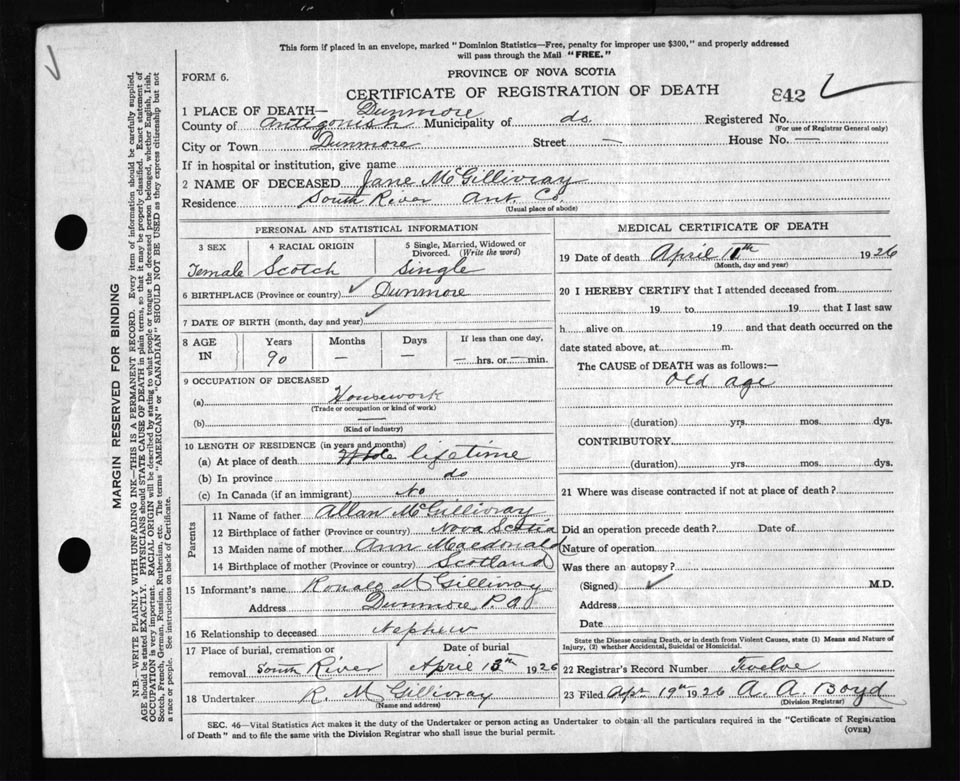 This form if placed in an envelope, marked "Dominion Statistics—Free, penalty for improper use $300," and properly addressed
will pass through the Mail "FREE."
FORM 6.
PROVINCE OF NOVA SCOTIA
CERTIFICATE OF REGISTRATION OF DEATH
842
1 PLACE OF DEATH— Dunmore
County of Antigonish Municipality of do. Registered No.
(For use of Registrar General only)
City or Town Dunmore Street — House No. —
If in hospital or institution, give name
2 NAME OF DECEASED Jane McGillivray
Residence South River Ant. Co.
(Usual place of abode)
PERSONAL AND STATISTICAL INFORMATION
3 SEX 4 RACIAL ORIGIN 5 Single, Married, Widowed or
Divorced. (Write the word)
Female Scotch Single
6 BIRTHPLACE (Province or country) Dunmore
7 DATE OF BIRTH (month, day and year)
8 AGE IN Years Months Days If less than one day,
90 — — — hrs. or — min.
9 OCCUPATION OF DECEASED
(a) Housework
(Trade or occupation or kind of work)
(b) —
(Kind of industry)
10 LENGTH OF RESIDENCE (in years and months)
(a) At place of death lifetime
(b) In province do
(c) In Canada (if an immigrant) No
Parents
11 Name of father Allan McGillivray
12 Birthplace of father (Province or country) Nova Scotia
13 Maiden name of mother Ann Macdonald
14 Birthplace of mother (Province or country) Scotland
15 Informant's name Ronald McGillivray
Address Dunmore P.O.
16 Relationship to deceased Nephew
17 Place of burial, cremation or Date of burial
removal South River April 13th 1926
18 Undertaker R. McGillivray
(Name and address)
MEDICAL CERTIFICATE OF DEATH
19 Date of death April 11th 1926
(Month, day and year)
20 I HEREBY CERTIFY that I attended deceased from
19 to 19 that I last saw
h alive on 19 and that death occurred on the
date stated above, at m.
The CAUSE of DEATH was as follows:—
Old age
(duration) yrs. mos. dys.
CONTRIBUTORY
(duration) yrs. mos. dys.
21 Where was disease contracted if not at place of death?
Did an operation precede death? Date of
Nature of operation
Was there an autopsy?
(Signed) M.D.
Address
Date
State the Disease causing Death, or in death from Violent Causes, state (1) Means and Nature of
Injury, (2) whether Accidental, Suicidal or Homicidal.
22 Registrar's Record Number Twelve
23 Filed Apr 19th 1926 A. A. Boyd
(Division Registrar)
SEC. 46—Vital Statistics Act makes it the duty of the Undertaker or person acting as Undertaker to obtain all the particulars required in the "Certificate of Registration
of Death" and to file the same with the Division Registrar who shall issue the burial permit.
(OVER)
MARGIN RESERVED FOR BINDING
N.B.—WRITE PLAINLY WITH UNFADING INK—THIS IS A PERMANENT RECORD. Every item of information should be carefully supplied.
AGE should be stated EXACTLY. PHYSICIANS should STATE CAUSE OF DEATH in plain terms, so that it may be properly classified. Exact statement of
OCCUPATION is very important. RACIAL ORIGIN will be described by stating to what people or tongue the deceased person belonged, whether English, Irish,
Scotch, French, German, Russian, Ruthenian, etc. The terms "AMERICAN" or "CANADIAN" SHOULD NOT BE USED as they express citizenship but not
a race or people. See instructions on back of Certificate.